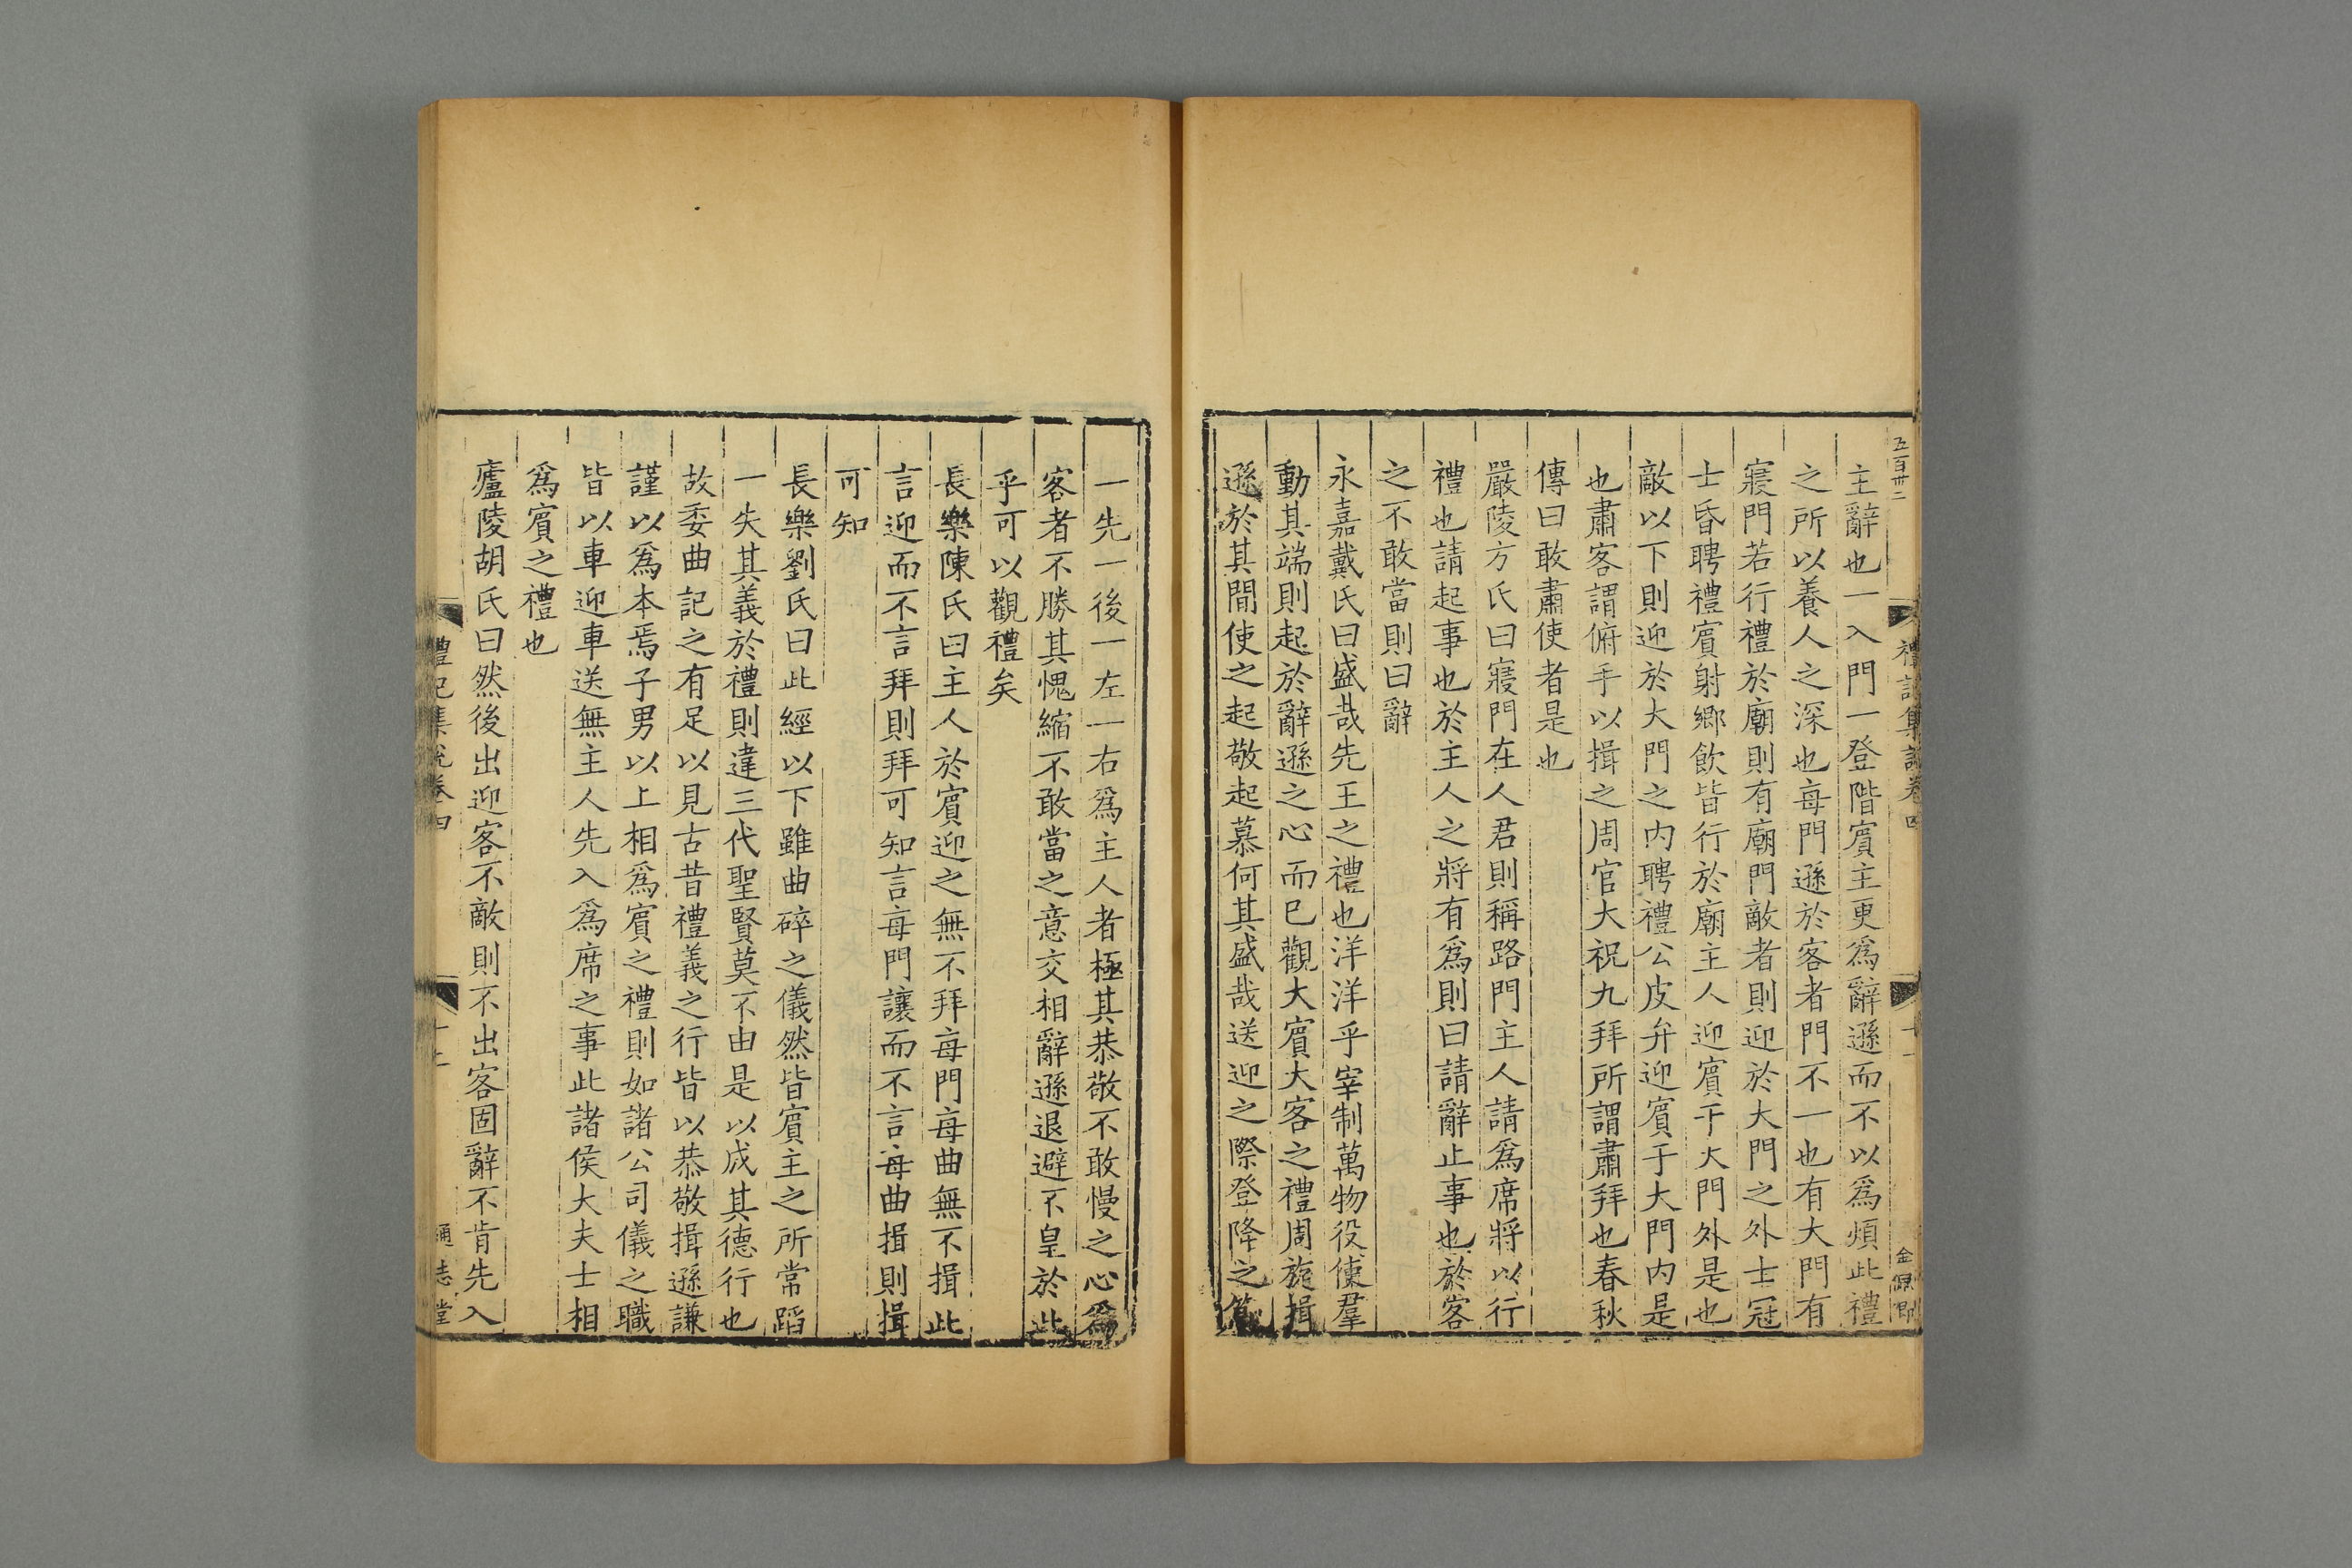 五百卅二
禮記集說卷四
十一
主辭也一入門一登階賓主更爲辭遜而不以爲煩此禮
之所以養人之深也每門遜於客者門不一也有大門有
寢門若行禮於廟則有廟門敵者則迎於大門之外士冠
士昏聘禮賓射鄉飲皆行於廟主人迎賓于大門外是也
敵以下則迎於大門之内聘禮公皮弁迎賓于大門内是
也肅客謂俯手以揖之周官大祝九拜所謂肅拜也春秋
傳曰敢肅使者是也
嚴陵方氏曰寢門在人君則稱路門主人請爲席將以行
禮也請起事也於主人之將有爲則曰請辭止事也於客
之不敢當則曰辭
永嘉戴氏曰盛哉先王之禮也洋洋乎宰制萬物役使羣
動其端則起於辭遜之心而已觀大賓大客之禮周旋揖
遜於其間使之起敬起慕何其盛哉送迎之際登降之節
一先一後一左一右爲主人者極其恭敬不敢慢之心爲
客者不勝其愧縮不敢當之意交相辭遜退避不皇於此
乎可以觀禮矣
長樂陳氏曰主人於賓迎之無不拜每門每曲無不揖此
言迎而不言拜則拜可知言每門讓而不言每曲揖則揖
可知
長樂劉氏曰此經以下雖曲碎之儀然皆賓主之所常蹈
一失其義於禮則違三代聖賢莫不由是以成其德行也
故委曲記之有足以見古昔禮義之行皆以恭敬揖遜謙
謹以爲本焉子男以上相爲賓之禮則如諸公司儀之職
皆以車迎車送無主人先入爲席之事此諸侯大夫士相
爲賓之禮也
廬陵胡氏曰然後出迎客不敵則不出客固辭不肯先入
禮記集說卷四
十二
通志堂